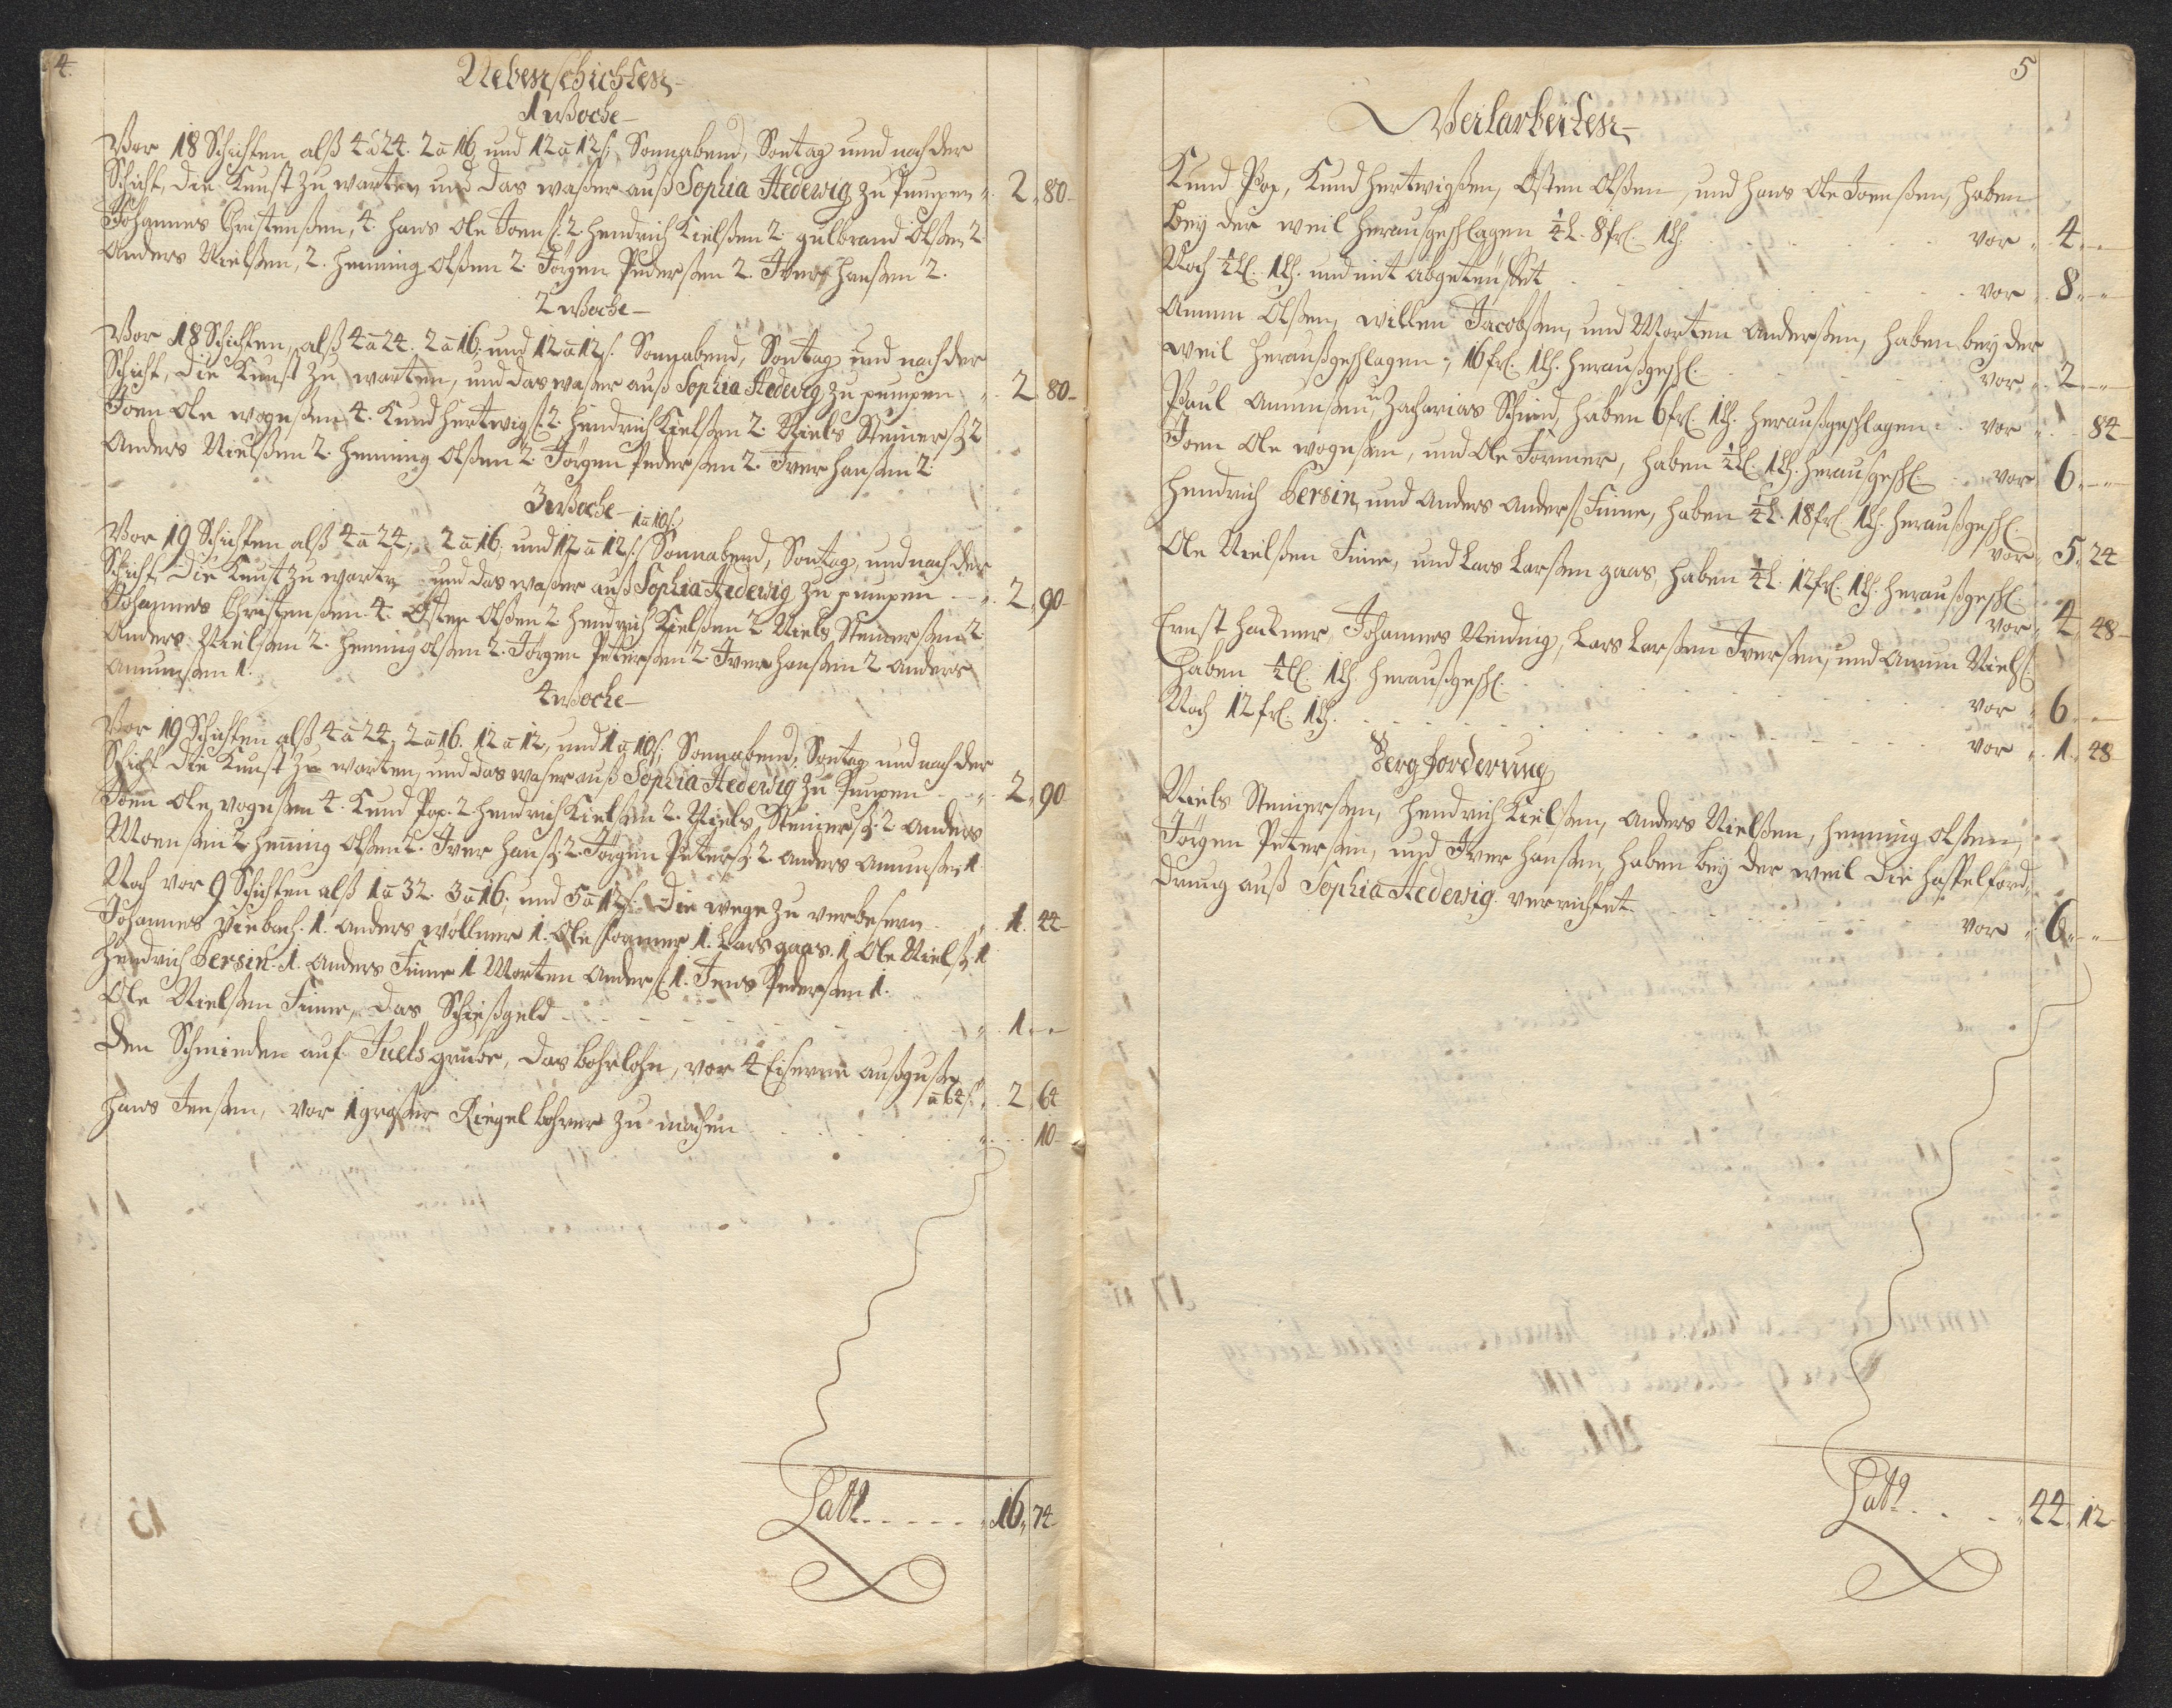 4.
Nebenschichten
1 Woche
Vor 18 Schichten alß 4 a 24. 2 a 16, und 12 a 12 ß; Sonnabend, Sontag und nach der
Schicht, die Kunst zu warten und das waßer auß Sophia Hedewig zu Pumpen 2, 80
Johannes Christenßen, 4. Hans Ole Joenß. 2. Hendrich Kielßen 2. gulbrand Olßen 2
Anders Nielßen, 2. Henning Olßen 2. Jörgen Pederßen 2. Iver Hanßen 2.
2 Woche
Vor 18 Schichten, alß 4 a 24. 2 a 16; und 12 a 12 ß. Sonnabend, Sontag und nach der
Schicht, die Kunst zu warten, und das waßer auß Sophia Hedewig zu pumpen 2, 80
Joen Ole wogeßen 4. Knud Hertwigß. 2 Hendrich Kielßen 2. Niels Steinerß. 2
Anders Nielßen 2. Henning Olßen 2. Jörgen Pederßen 2. Iver Hanßen 2.
3 Woche
1 a 10 ß
Vor 19 Schichten alß 4 a 24, 2 a 16; und 12 a 12 ß. Sonnabend, Sontag, und nach der
Schicht die Kunst zu warten und das waßer auß Sophia Hedewig zu pumpen 2, 90
Johannes Christenßen 4. Osten Olßen 2 Hendrich Kielßen 2 Niels Steinerßen 2
Anders Nielßen 2. Henning Olßen 2. Jörgen Peterßen 2. Iver Hanßen 2 Anders
Amunßen 1.
4 Woche
Vor 19 Schichten alß 4 a 24, 2 a 16. 12 a 12, und 1 a 10 ß; Sonnabend, Sontag und nach der
Schicht die Kunst zu warten, und das waßer auß Sophia Hedewig zu Pumpen 2, 90
Joen Ole vogeßen 4. Knud Pop. 2. Hendrich Kielßen 2. Niels Steinerß. 2 Anders
Moenßen 2 Henning Olßen 2. Iver Hanß. 2. Jörgen Peterß. 2. Anders Amunßen 1.
Noch vor 9 Schichten alß 1 a 32. 3 a 16; und 5 a 12 ß. Die wege zu verbeßern 1. 44
Johannes Viebach. 1. Anders wöllner 1. Ole former 1. Lars gaas. 1. Ole Nielß. 1
Hendrich Bersin. 1. Anders Finne 1 Morten Anderß. 1. Jens Pederßen 1.
Ole Nielßen Finne, das Schießgeld 1
Den Schmieden auf Juels grube, das Bohrlohn, vor 4 Eiserne außgußen
a 64 ß. 2, 64
Hans Jenßen, vor 1 großer Riegel Bohrer zu machen 10
Latt. 16, 74
5
Weilarbeiten
Knud Pop, Knud Hertwigßen, Osten Olßen, und Hans Ole Joenßen, haben
bey der weil heraußgeschlagen ¼ L. 8 frl. 1 lh. vor 4
Noch ½ L. 1 lh. und mit abgeteußet vor 8
Amun Olßen, willen Jacobßen, und Morten Anderßen, haben bey der
weil heraußgeschlagen, 16 frl. 1 lh. heraußgeschl. vor 2
Paul Amunßen, u Zacharias Schmid, haben 6 frl. 1 lh. heraußgeschlagen vor 84
Joen Ole wogeßen, und Ole Former, haben ½ L. 1 lh. heraußgeschl. vor 6
Hendrich Bersin, und Anders Anderß Finne, haben ¼ L. 18 frl. 1 lh. heraußgeschl.
vor 5, 24
Ole Nielßen Finne, und Lars Larßen gaas, haben ¼ L. 12 frl. 1 lh. heraußgeschl.
vor 4, 48
Ernst Hackner, Johannes Neiding, Lars Larßen Iverßen, und Amun Nielß.
haben ½ L. 1 lh. heraußgeschl. vor 6
Noch 12 frl. 1 lh. vor 1, 48
Bergforderung
Niels Steinerßen, Hendrich Kielßen, Anders Nielßen, Henning Olßen,
Jörgen Peterßen, und Iver Hanßen, haben bey der weil die Haspelford,
drung auß Sophia Hedewig verrichtet
vor 6
Latt. 44, 12